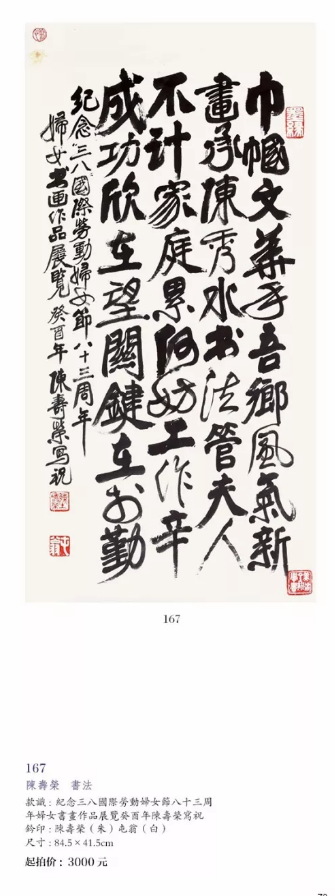 巾幗文華手吾鄉風氣新
畫承陳秀水书法管夫人
不计家庭累何妨工作辛
成功欣在望關鍵在於勤
纪念三八國際勞動婦女節八十三周年
婦女书画作品展覽癸酉年陳壽榮寫祝
167
167
陳壽榮 書法
款識：紀念三八國際勞動婦女節八十三周
年婦女書畫作品展覽癸酉年陳壽榮寫祝
鈐印：陳壽榮（朱）屯翁（白）
尺寸：84.5×41.5cm
起拍价：3000元